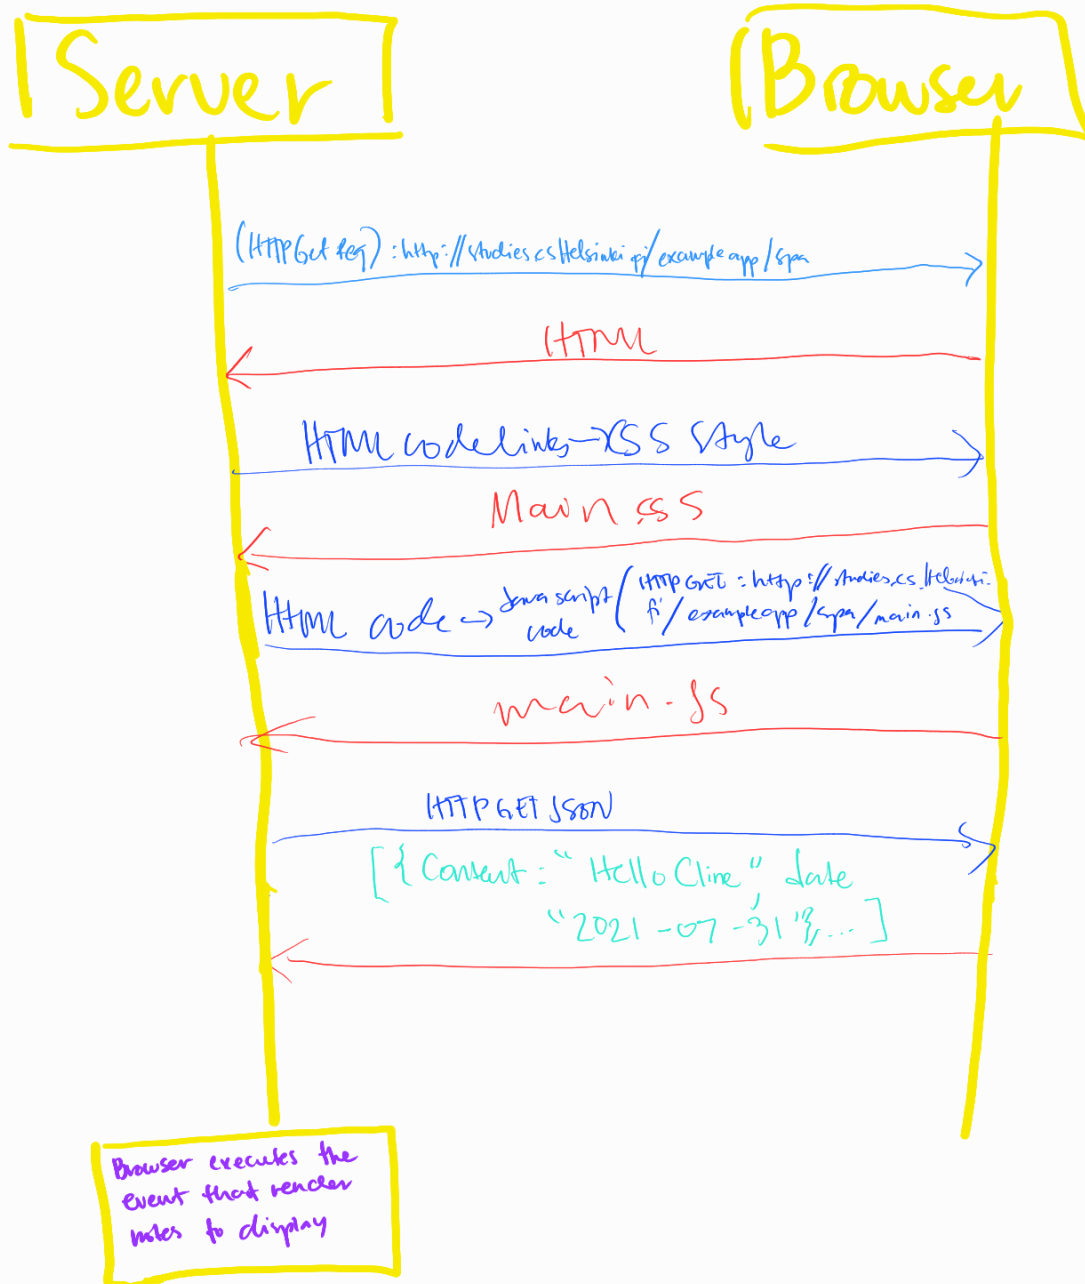 Server
Browser
(HTTP Get req) : http://studies.cs.Helsinki.fi/exampleapp/spa
HTML
HTML code links → CSS Style
Main.css
Html code → Javascript code (HTTP GET : http://studies.cs.Helsinki.
fi/exampleapp/spa/main.js
main.js
HTTP GET JSON
[{Content : "Hello Cline", date
"2021-07-31"},... ]
Browser executes the
event that render
notes to display